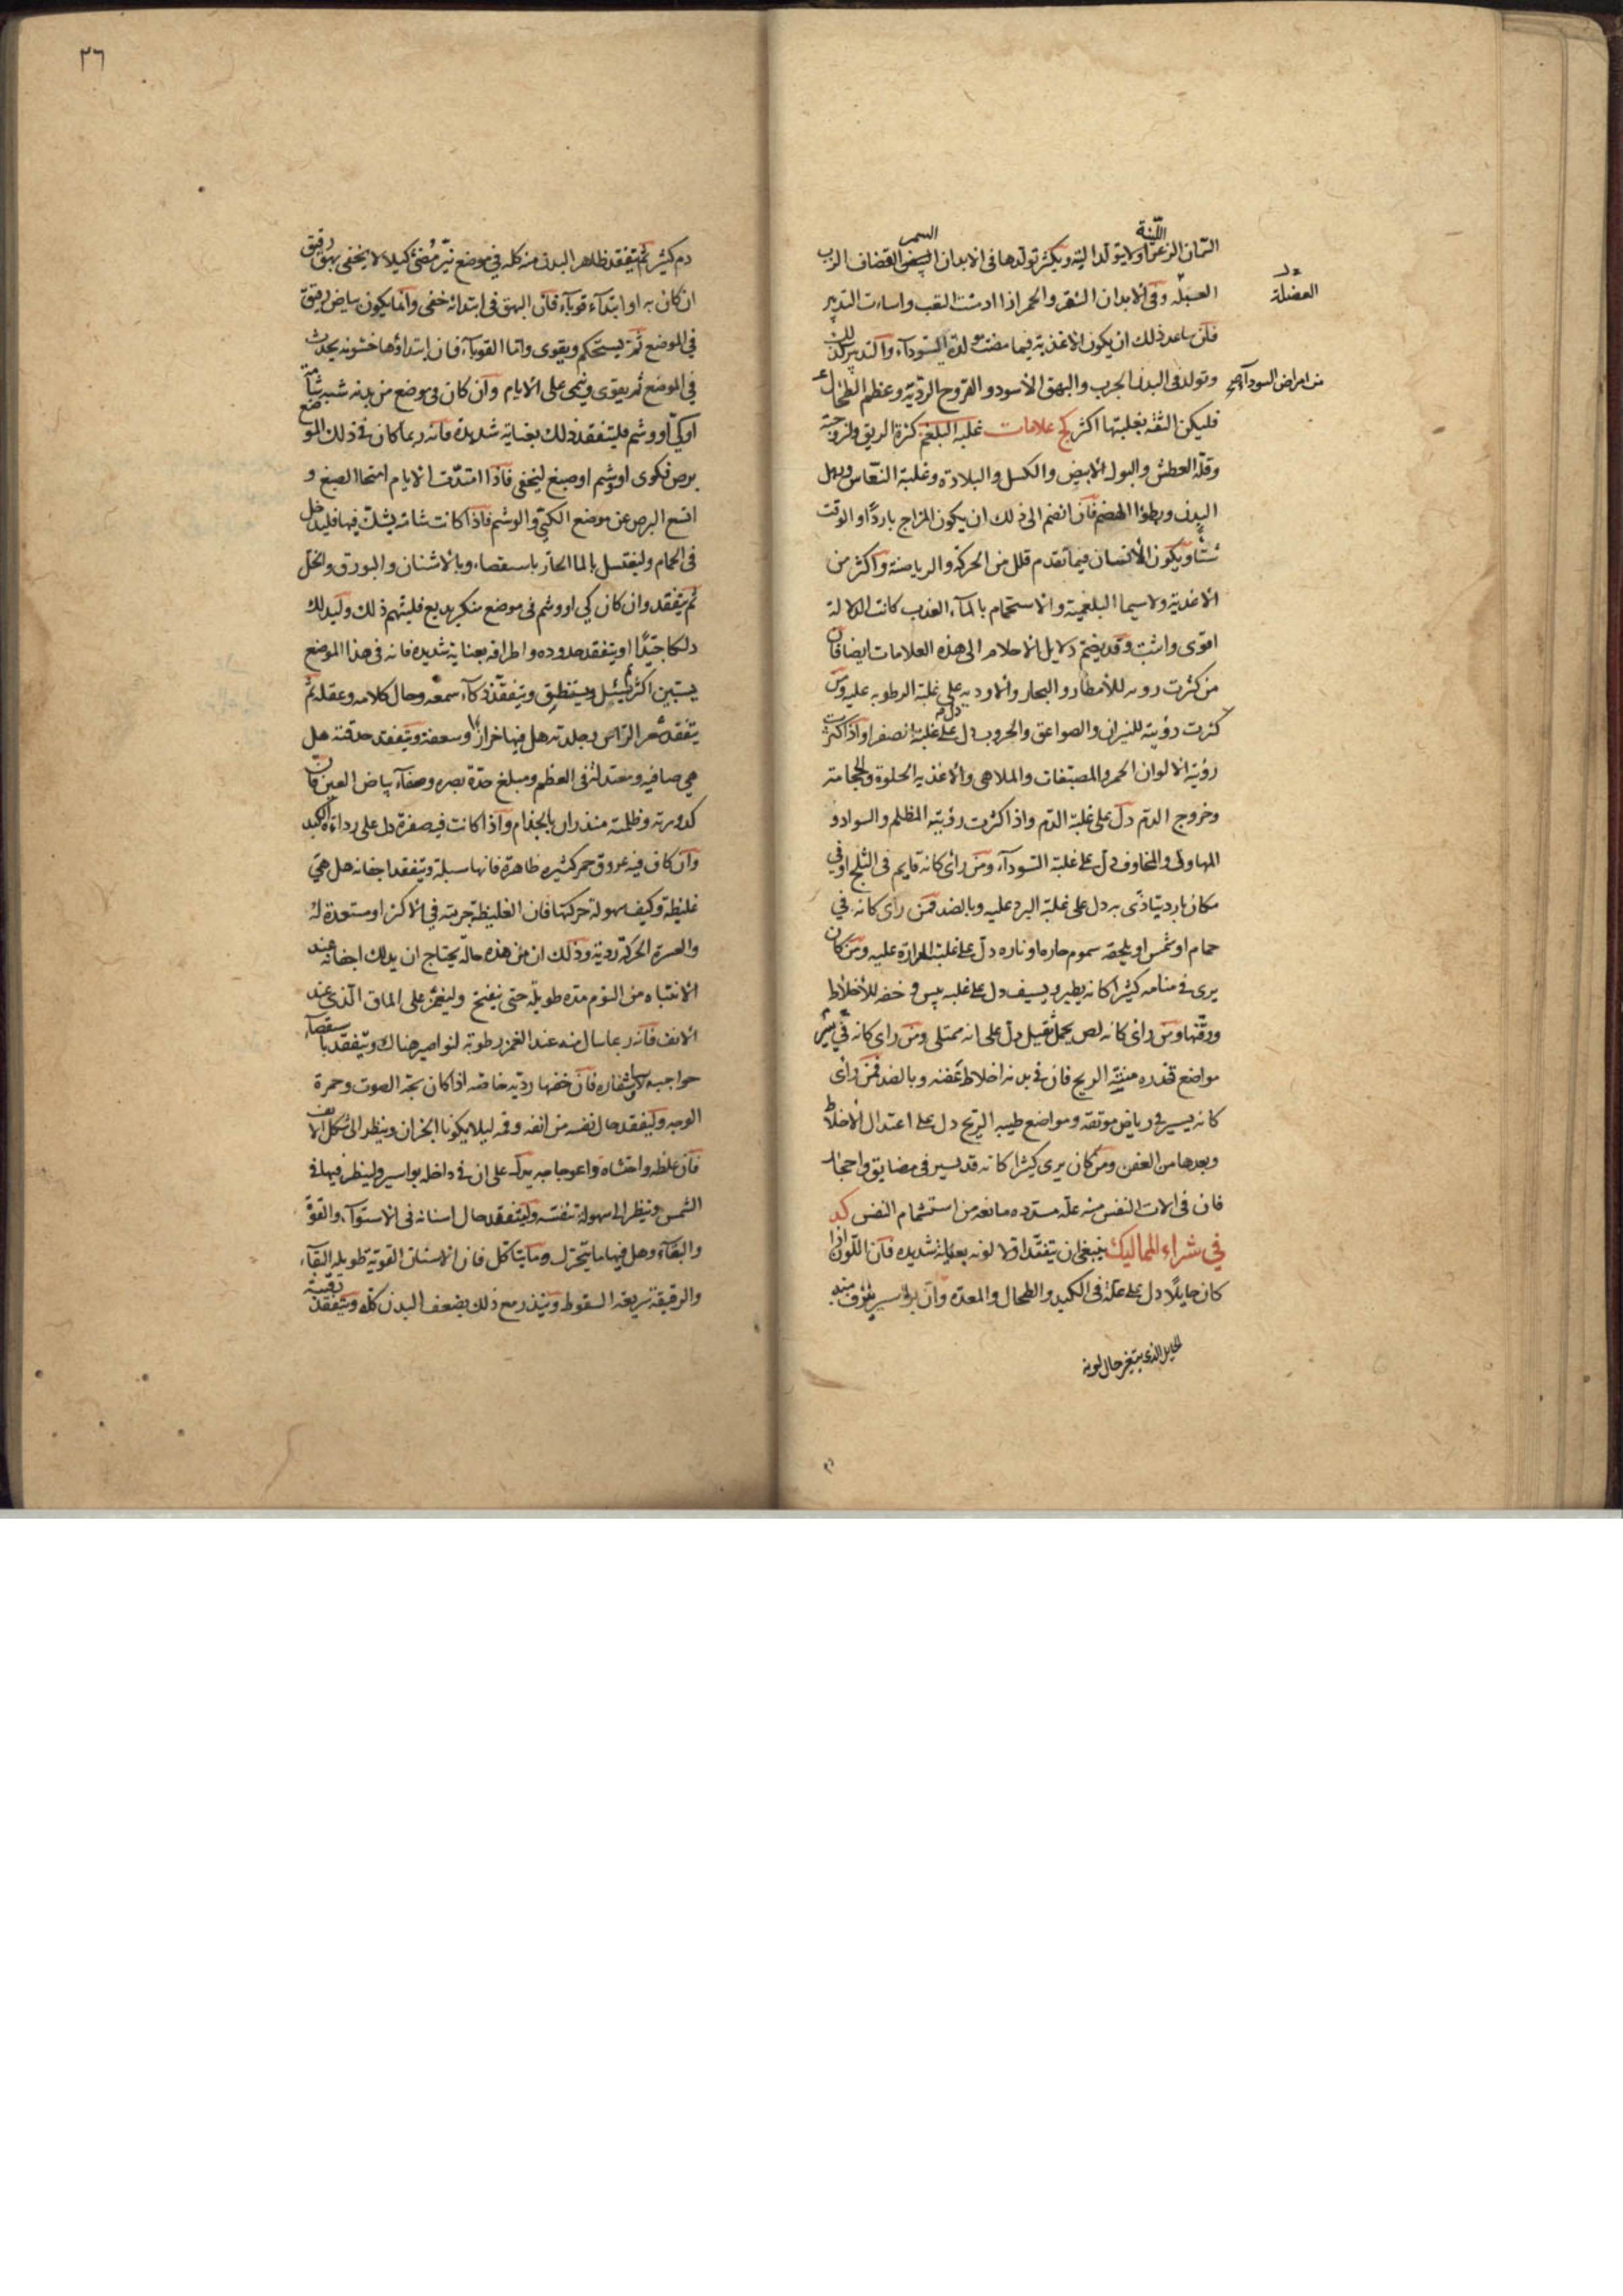 اللينة
السمر
السمان الزعر اولا يتولد البتة ويكثر تولدها في الابدان البيض القضاف الزب
العضلة
العبله وفي الابدان الشقر والحمر اذا ادمنت التعب واساءت التدبير
فان ساعد ذلك ان يكون الاغذية فيما مضت مولدة للسوداء والتدبير كذلك
وتولد في البدن الجرب والبهق الاسود والقروح الردية وعظم الطحال
من امراض السوداء
فليكن الثقة بغلبتها اكثر كج علامات غلبة البلغم كثرة الريق ولزوجته
وقلة العطش والبول الابيض والكسل والبلادة وغلبة النعاس وترهل
البدن وبطوا الهضم فان انضم الى ذلك ان يكون المزاج باردًا او الوقت
شتًا ويكون الانسان فيما تقدم قلل من الحركة والرياضة واكثر من
الاغذية ولا سيما البلغمية والاستحمام بالماء العذب كانت الدلالة
اقوى واثبت وقد يضم دلايل الاحلام الى هذه العلامات ايضا فان
من كثرت رويه للامطار والبحار والاوديه دل على غلبة الرطوبه عليه ومن
كثرت رؤيته للنيران والصواعق والحروب دل على غلبة الصفرا واذا كثرت
رؤيته الالوان الحمر والمصبغات والملاهي والاغذيه الحلوة والحجامة
وخروج الدم دل على غلبة الدم واذا كثرت رؤيته المظلم والسواد و
المهاول والمخاوف دل على غلبة السوداء ومن راى كانه قايم في الثلج او في
مكان بارد يتاذى به دل على غلبة البرد عليه وبالضد فمن راى كانه في
حمام او شمس او يلحقه سموم حاره او ناره دل على غلبة الحرارة عليه ومن كان
يرى في منامه كثيرا كانه يطير ويسيف دل على غلبه يبس و خفه للاخلاط
ورقتها ومن راى كانه لص يحمل ثقيل دل على انه ممتلى ومن راى كانه في بئر
مواضع قذره منتنة الريح فان في بدنه اخلاط عفنه وبالضد فمن راى
كانه يسير في رياض مونقه ومواضع طيبه الريح دل على اعتدال الاخلاط
وبعدها من العفن ومن كان يرى كثيرا كانه قد يسير في مضايق واحجار
فان في الات النفس منه علة مسدده مانعه من استتمام النفس كد
في شراء المماليك ينبغي ان يتفقد اولا لونه بعناية شديده فان اللون اذا
كان حايلًا دل على علة في الكبد والطحال والمعده وان بواسير ينزف منه
الحايل الذي يتغير حال لونه
٢٦
دم كثير ثم يتفقد ظاهر البدن منه كله في موضع نير مضئ كيلا لا يخفى بهق رقيق
ان كان به او ابتداء قوباء فان البهق في ابتدائه خفى وانما يكون بياض رقيق
في الموضع ثم يستحكم ويقوى واما القوباء فان ابتداؤها خشونه يحدث
في الموضع ثم يقوى وينمى على الايام وان كان في موضع من بدنه شبه شامة
او كي او وشم فليتفقد ذلك بعناية شديدة فانه ربما كان في ذلك الموضع
برص فكوى او وشم او صبغ ليخفى فاذا امتدت الايام امتحا الصبغ و
اتسع البرص عن موضع الكي والوشم فاذا كانت شامه يشك فيها فليدخل
في الحمام وليغتسل بالما الحار باستقصاء وبالاشنان والبورق والخل
ثم يتفقد وان كان كي او وشم في موضع منكر بديع فليتهم ذلك وليدلك
دلكا جيدًا او يتفقد حدوده واطرافه بعناية شديده فانه في هذا الموضع
يستبين اكثر ثم يسئل ويستنطق ويتفقد ذكاء سمعه وحال كلامه وعقله ثم
يتفقد شعر الراس وجلدته هل فيها خراز او سعفة ويتفقد حدقته هل
هي صافيه ومعتدلة في العظم ومبلغ حدة بصره وصفاء بياض العين فان
كدورته وظلمته منذران بالجذام واذا كانت فيه صفرة دل على رداءة الكبد
وان كان فيه عروق حمر كثيره ظاهرة فانها سبلة ويتفقد اجفانه هل هي
غليظة وكيف سهولة حركتها فان الغليظة جربته في الاكثر او مستعدة له
والعسرة الحركة ردية وذلك ان من هذه حاله يحتاج ان يدلك اجفانه عند
الانتباه من النوم مدة طويلة حتى ينفتح وليغمز على الماق الذي عند
الانف فانه ربما سال منه عند الغمز رطوبة لنواصير هناك ويتفقد باستقصاء
حواجبه واشفاره فان خفها رديه خاصة اذا كان بحة الصوت وحمرة
الوجه وليفقد حال نفسه من انفه وفمه ليلا يكونا ابخران وينظر الى شكل الانف
فان غلظه وانتشاه واعوجاجه يدل على ان في داخله بواسير ولينظر فيها في
الشمس وينظر الى سهولة تنفسه وليتفقد حال اسنانه في الاستواء والقوة
والبقاء وهل فيها ما يتحرك وما يتاكل فان الاسنان القوية طويلة البقاء
والرقيقة سريعة السقوط وينذر مع ذلك بضعف البدن كله ويتفقد